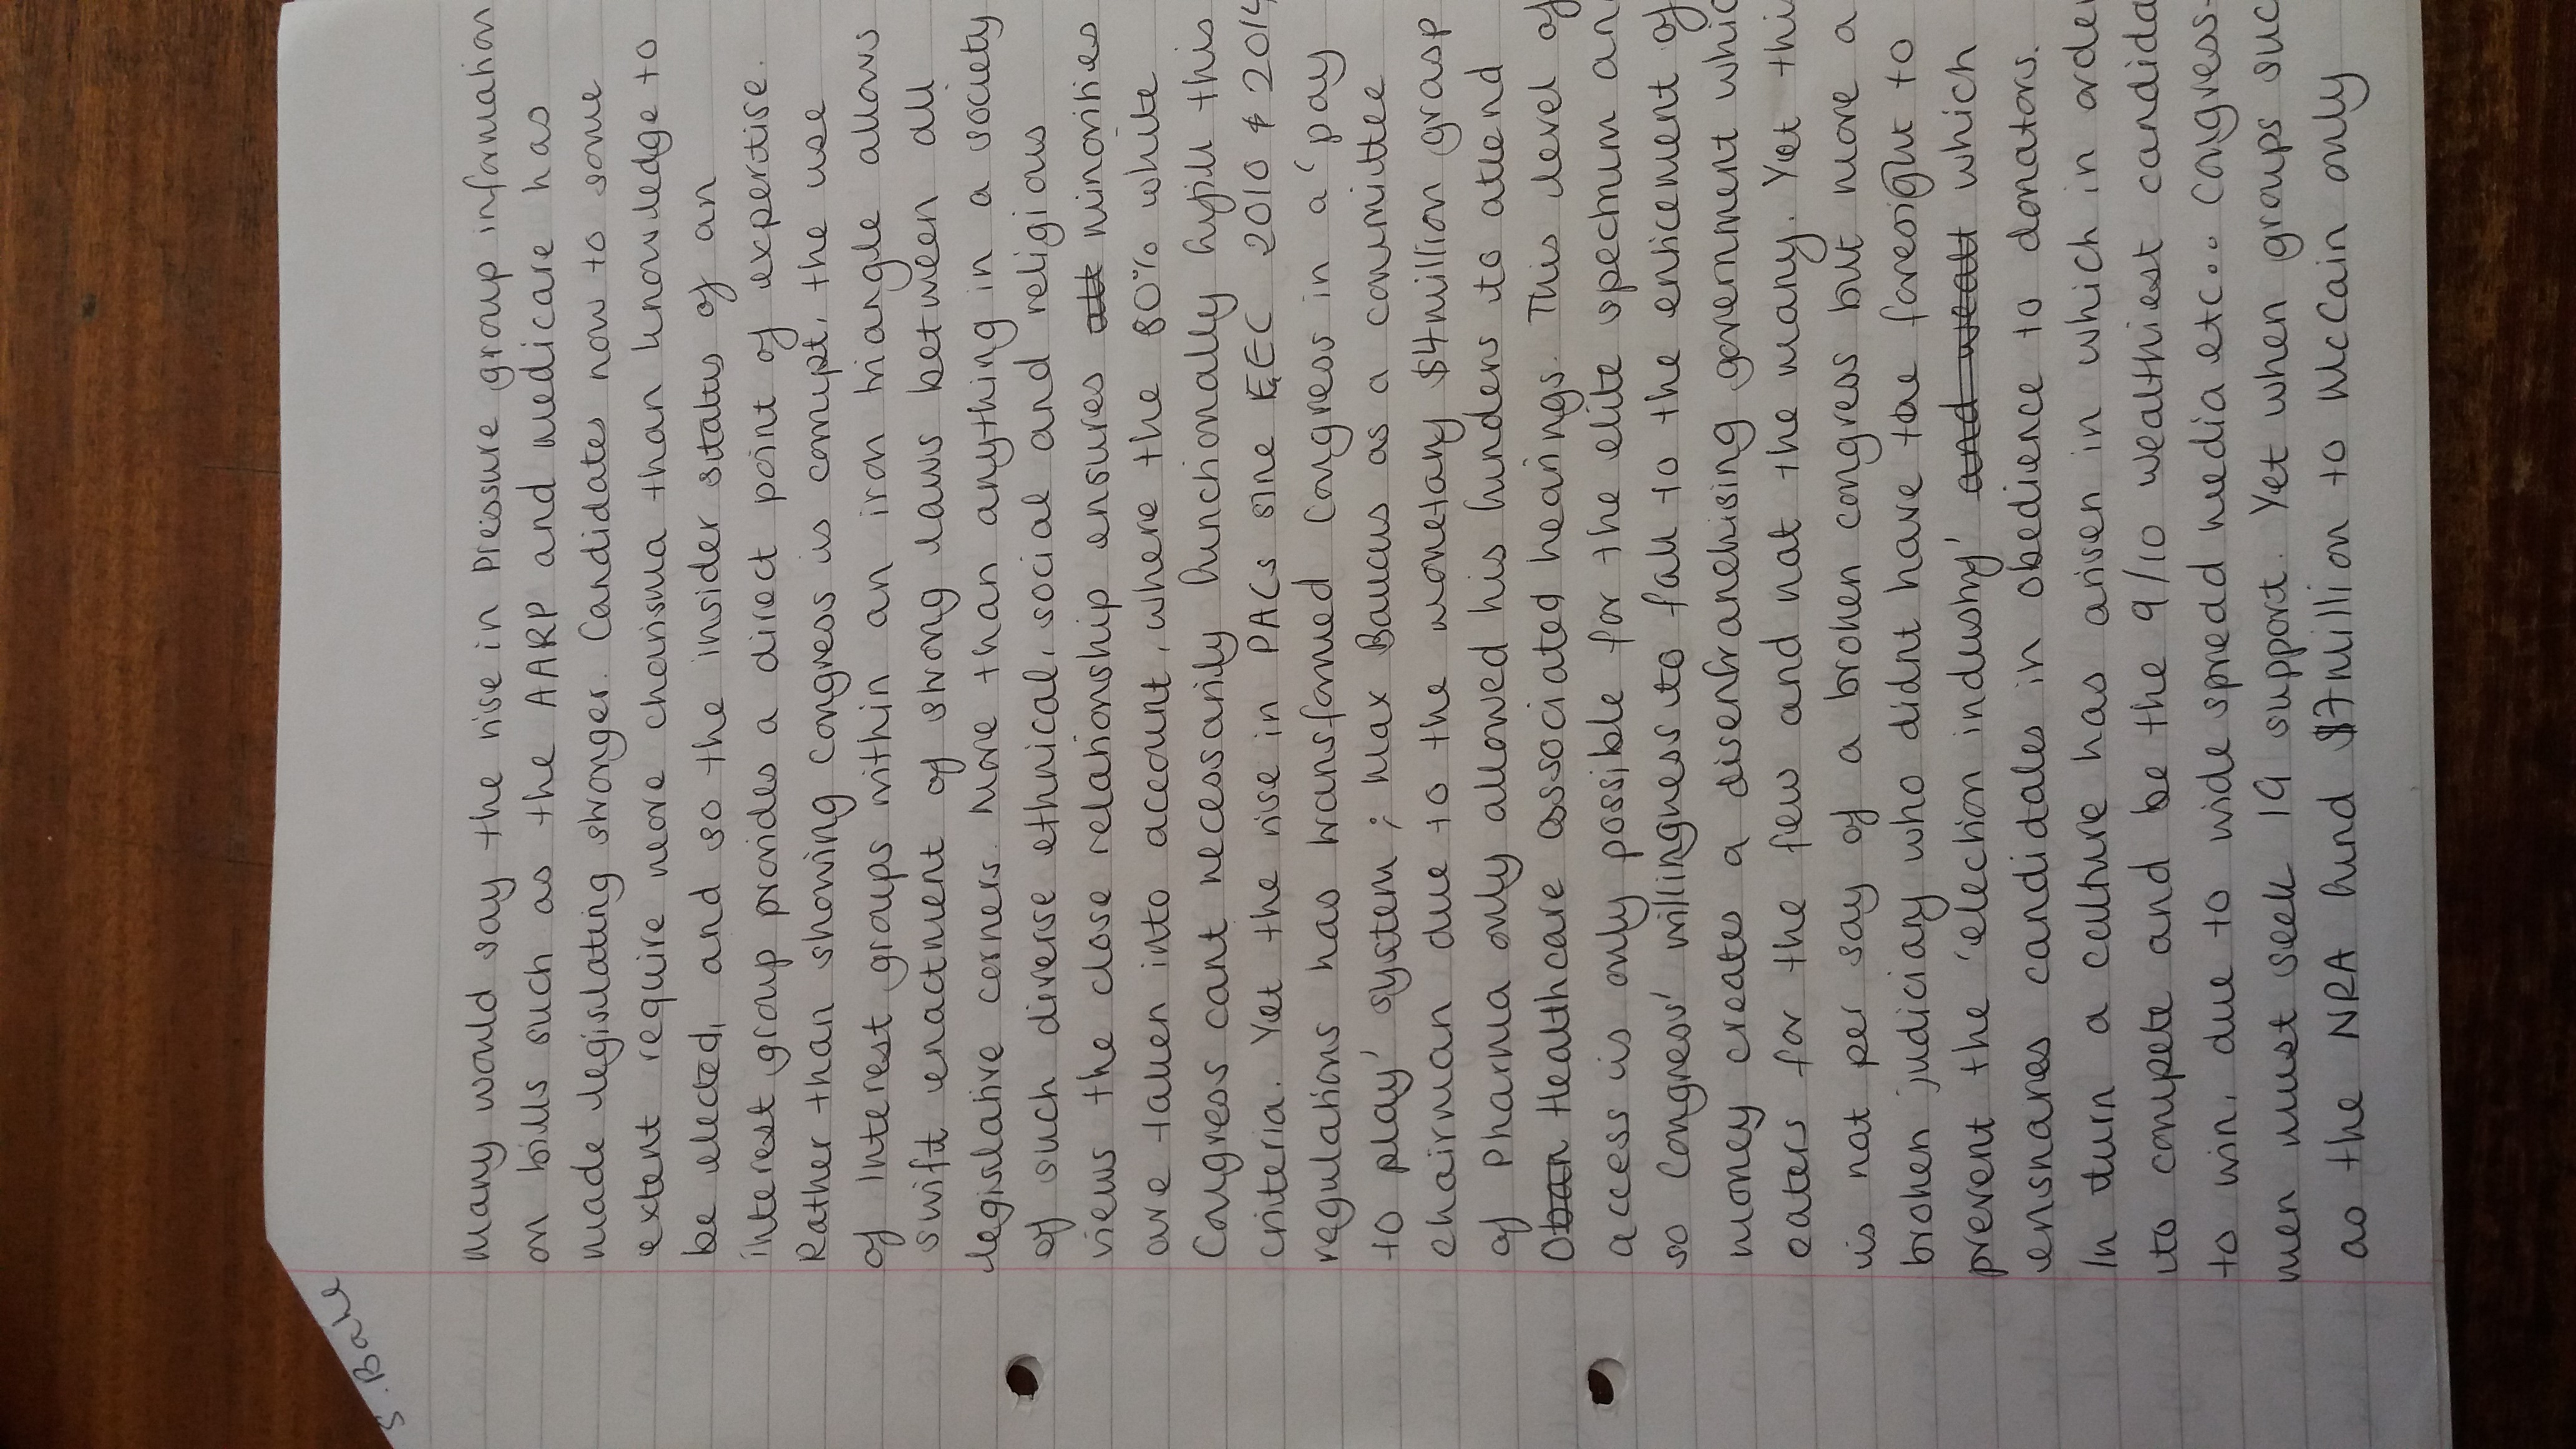 S. Bahe
Many would say the rise in Pressure group information
on bills such as the AARP and medicare has
made legislating stronger. Candidates now to some
extent require more charisma than knowledge to
be elected, and so the insider status of an
interest group provides a direct point of expertise.
Rather than showing congress is corrupt, the use
of Interest groups within an iron triangle allows
swift enactment of strong laws between all
legislative corners. More than anything in a society
of such diverse ethnical, social and religious
views the close relationship ensures minorities
are taken into account, where the 80% white
Congress cant necessarily functionally fulfill this
criteria. Yet the rise in PACs sine FEC 2010 & 2014
regulations has transformed Congress in a 'pay
to play' system; Max Baucus as a committee
chairman due to the monetary $4million grasp
of Pharma only allowed his funders to attend
Healthcare associated hearings. This level of
access is only possible for the elite spectrum an
so Congress' willingness to fall to the enticement of
money creates a disenfranchising government whic
caters for the few and not the many. Yet thi
is not per say of a broken congress but more a
broken judiciary who didnt have the foresight to
prevent the 'election industry' and wealt which
ensnares candidates in obedience to donators.
In turn a culture has arisen in which in order
to compete and be the 9/10 wealthiest candida
to win, due to wide spred media etc... congress-
men must seek IG support. Yet when groups suc
as the NRA fund $7million to McCain only